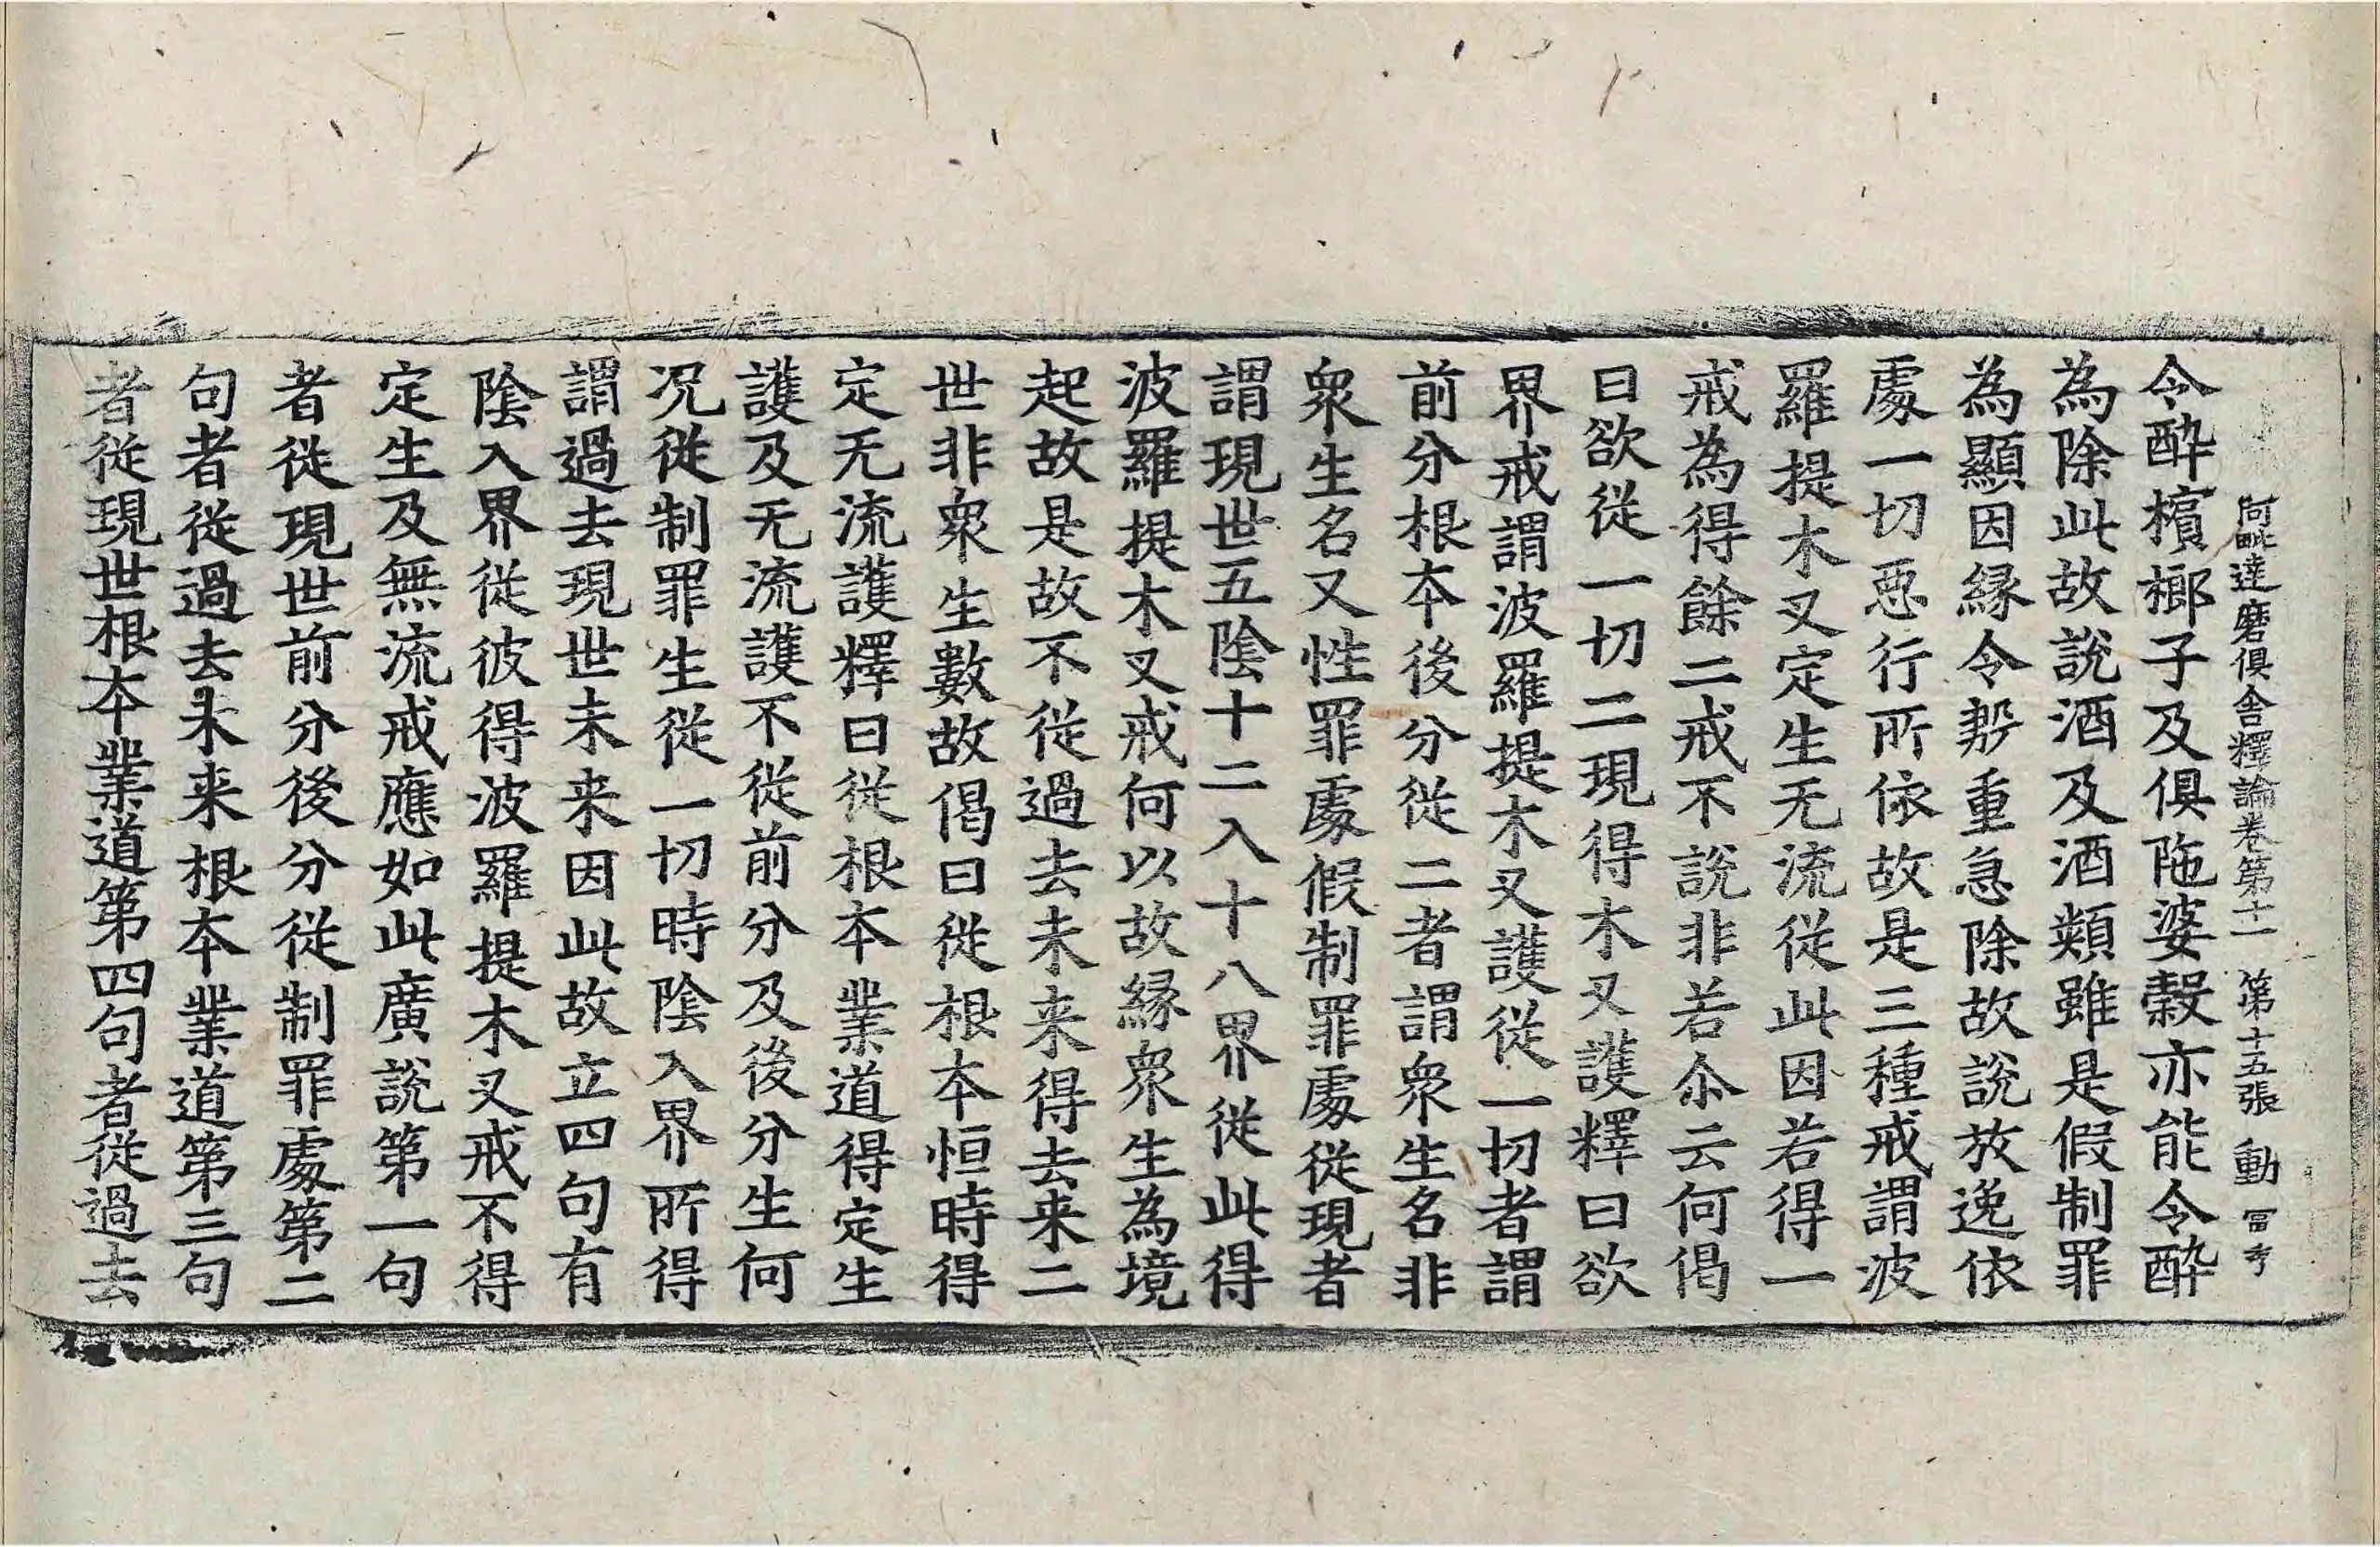 阿毗達磨俱舍釋論卷第十一 第十五張 動 冨考
令醉檳榔子及俱陁婆縠亦能令醉
為除此故說酒及酒類雖是假制罪
為顯因緣令勢重急除故說放逸依
處一切惡行所依故是三種戒謂波
羅提木叉定生无流從此因若得一
戒為得餘二戒不說非若尒云何偈
曰欲從一切二現得木叉護釋曰欲
界戒謂波羅提木叉護從一切者謂
前分根本後分從二者謂眾生名非
眾生名又性罪處假制罪處從現者
謂現世五陰十二入十八界從此得
波羅提木叉戒何以故緣眾生為境
起故是故不從過去未来得去来二
世非眾生數故偈曰從根本恒時得
定无流護釋曰從根本業道得定生
護及无流護不從前分及後分生何
況從制罪生從一切時陰入界所得
謂過去現世未来因此故立四句有
陰入界從彼得波羅提木叉戒不得
定生及無流戒應如此廣說第一句
者從現世前分後分從制罪處第二
句者從過去未来根本業道第三句
者從現世根本業道第四句者從過去